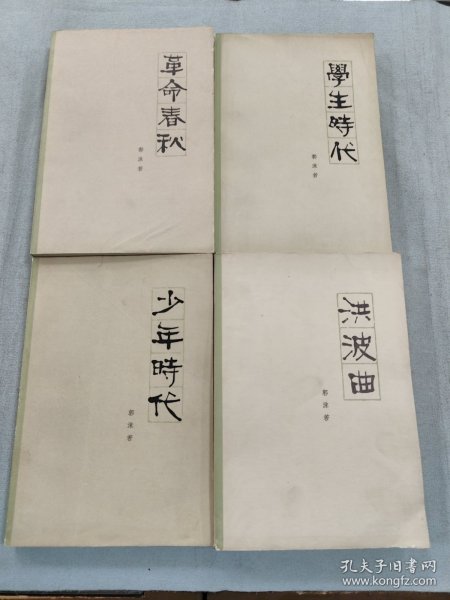 革命春秋
郭沫若
學生時代
郭沫若
少年時代
郭沫若
洪波曲
郭沫若
孔夫子旧书网
www.kongfz.com